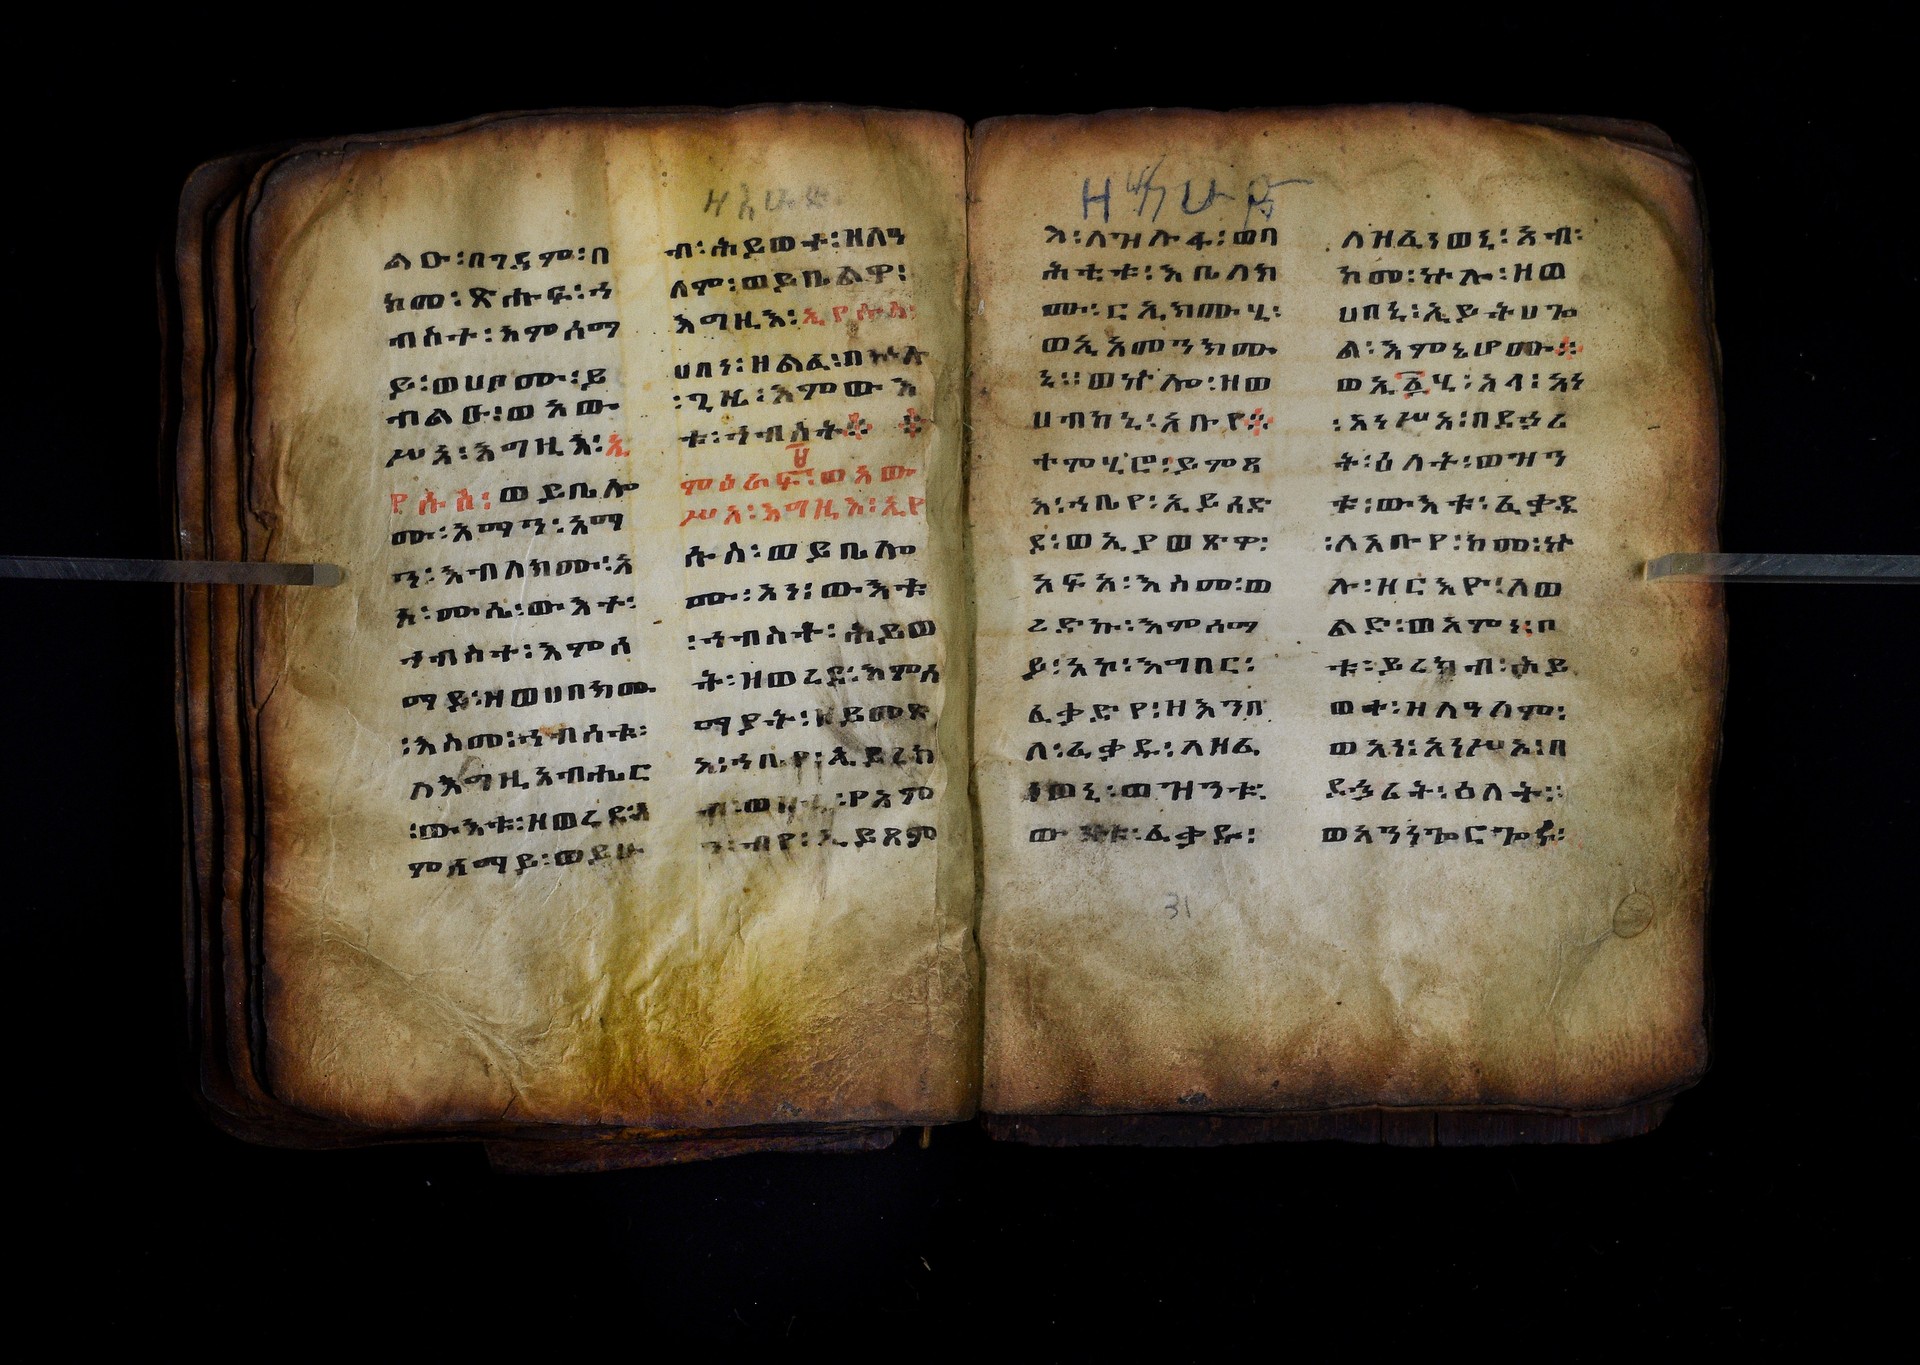 ዘእሁድ
ልዑ፡በገዳም፡በ
ከመ፡ጽሑፍ፡ኅ
ብስተ፡እምሰማ
ይ፡ወሀቦሙ፡ይ
ብልዑ፡ወአው
ሥአ፡እግዚእ፡ኢ
የሱስ፡ወይቤሎ
ሙ፡አማን፡አማ
ን፡እብለክሙ፡አ
አ፡ሙሴ፡ውእቱ፡
ኅብስተ፡እምሰ
ማይ፡ዘወሀበክሙ
፡እስመ፡ኅብሰቱ፡
ለእግዚአብሔር
፡ውእቱ፡ዘወረደ፡እ
ምሰማይ፡ወይሁ
ብ፡ሕይወተ፡ዘለዓ
ለም፡ወይቤልዎ፡
እግዚእ፡ኢየሱስ፡
ሀበነ፡ዘልፈ፡በኵሉ
፡ጊዜ፡እምውእ
ቱ፡ኅብስት፨
፱
ምዕራፍ፡ወአው
ሥአ፡እግዚእ፡ኢየ
ሱስ፡ወይቤሎ
ሙ፡አነ፡ውእቱ
፡ኅብስቶ፡ሕይወ
ት፡ዘወረደ፡እምሰ
ማያት፡ዘይመጽ
እ፡ኀቤየ፡ኢይርኅ
ብ፡ወዘሂ፡የአም
ን፡ብየ፡ኢይጸም
ዘእሁድ
እ፡ለዝሉፋ፡ወባ
ሕቲቱ፡እቤለክ
ሙ፡ርኢክሙሂ፡
ወኢአመንክሙ
ኒ።ወኵሎ፡ዘወ
ሀብከኒ፡አቡየ፨
ተምሂሮ፡ይምጻ
እ፡ኀቤየ፡ኢይሰድ
ደ፡ወኢያወጽዎ፡
አፍአ፡እስመ፡ወ
ረድኩ፡እምሰማ
ይ፡አኮ፡እግበር፡
ፈቃድየ፡ዘእንበ
ለ፡ፈቃዱ፡ለዘፈ
ነወኒ፡ወዝንቱ፡
ውእቱ፡ፈቃዱ፡
ለዝፈነወኒ፡አብ፡
ከመ፡ኵሎ፡ዘወ
ሀበኒ፡ኢይትሀጐ
ል፡እምኔሆሙ፨
ወኢ፩ሂ፡አላ፡አነ
፡አነሥአ፡በደኃሪ
ት፡ዕለት፡ወዝን
ቱ፡ውእቱ፡ፈቃዱ
፡ለአቡየ፡ከመ፡ኵ
ሉ፡ዘርእዮ፡ለወ
ልድ፡ወአምነ፡በ
ቱ፡ይረክብ፡ሕይ
ወተ፡ዘለዓለም፡
ወአነ፡አነሥኦ፡በ
ደኃሪት፡ዕለት።
ወአንጐርጐሩ፡
31